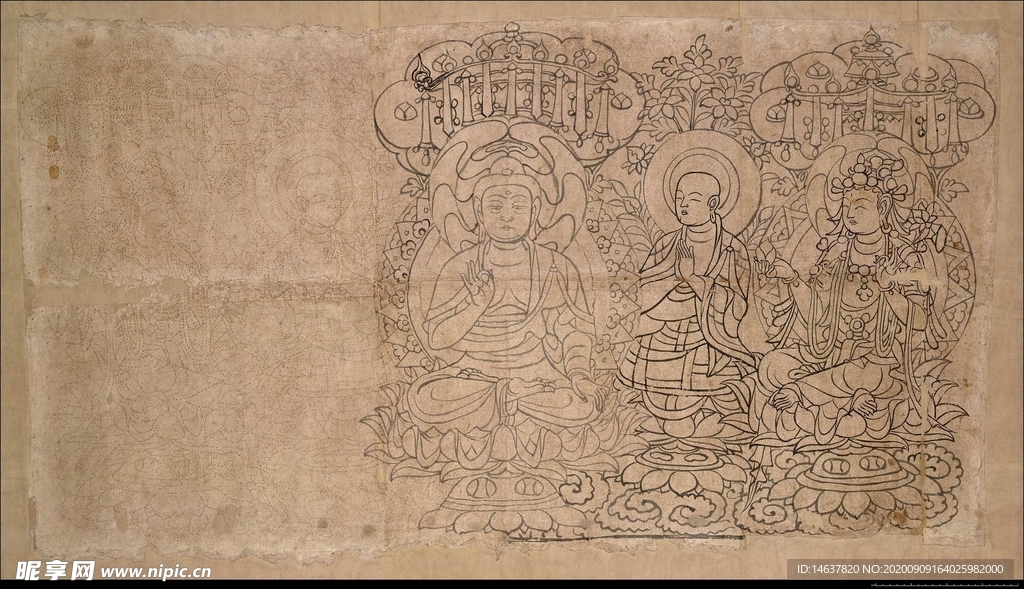 昵享网 www.nipic.cn
ID:14637820 NO:20200909164025982000